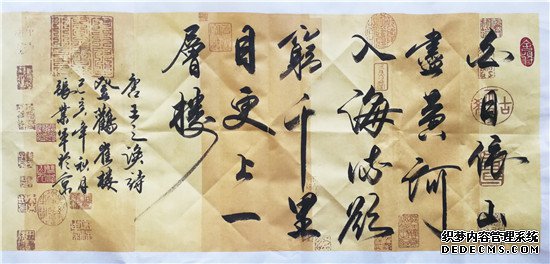 白日依山
盡黄河
入海流欲
窮千里
目更上一
層樓
唐王之渙詩
登鸛雀樓
己亥年秋月
張業軍於京
织梦内容管理系统
DEDECMS.COM